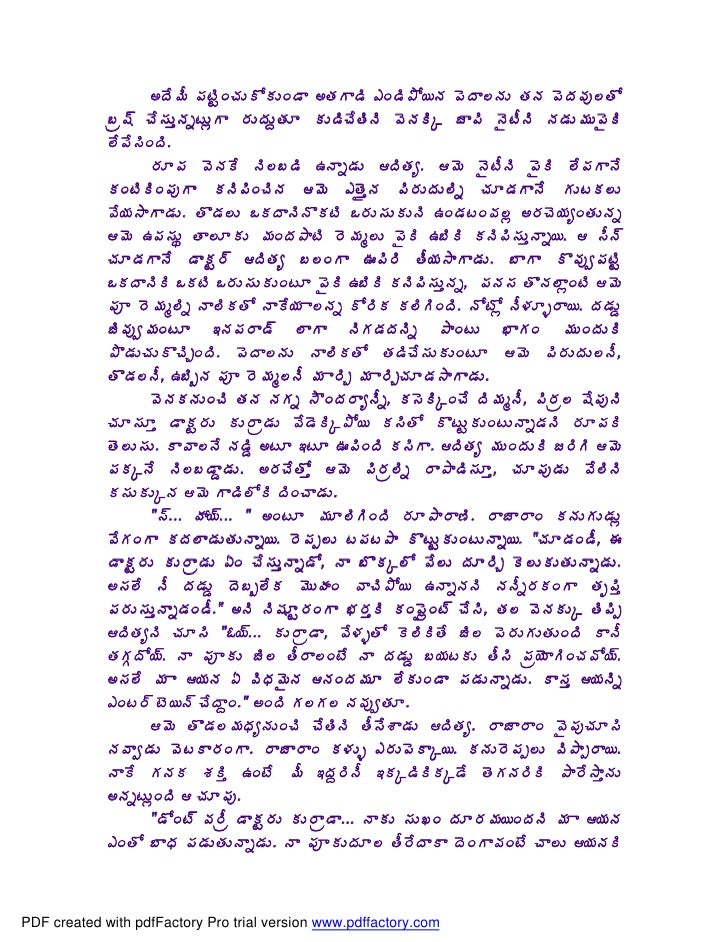 అదేమీ పట్టించుకోకుండా అతగాడి ఎండిపోయిన పెదాలను తన పెదవులతో
బ్రష్ చేస్తున్నట్లుగా రుదుద్దుతూ కుడిచేతిని వెనక్కి జాపి నైటీని నడుముపైకి
లేపేసింది.
రూప వెనకే నిలబడి ఉన్నాడు ఆదిత్య. ఆమె నైటీని పైకి లేపగానే
కంటికింపుగా కనిపించిన ఆమె ఎత్తైన పిరుదుల్ని చూడగానే గుటకలు
వేయసాగాడు. తొడలు ఒకదానినొకటి ఒరుసుకుని ఉండటంవల్ల అరచెయ్యంతున్న
ఆమె ఉపస్థు తాలూకు మందపాటి రెమ్మలు పైకి ఉబికి కనిపిస్తున్నాయి. ఆ సీన్
చూడగానే డాక్టర్ ఆదిత్య బలంగా ఊపిరి తీయసాగాడు. బాగా కొవ్వుపట్టి
ఒకదానికి ఒకటి ఒరుసుకుంటూ పైకి ఉబికి కనిపిస్తున్న, పనస తొనల్లాంటి ఆమె
పూ రెమ్మల్ని నాలికతో నాకేయాలన్న కోరిక కలిగింది. నోట్లో నీళ్ళూరాయి. దడ్డు
జివ్వుమంటూ ఇనపరాడ్ లాగా నిగడదన్ని పాంటు భాగం ముందుకి
పొడుచుకొచ్చింది. పెదాలను నాలికతో తడిచేసుకుంటూ ఆమె పిరుదులనీ,
తొడలనీ, ఉబ్బిన పూ రెమ్మలనీ మార్చి మార్చిచూడసాగాడు.
వెనకనుంచి తన నగ్న సౌందర్యాన్నీ, కసెక్కించే దిమ్మనీ, పిర్రల షేపుని
చూస్తూ డాక్టరు కుర్రాడు వేడెక్కిపోయి కసితో కొట్టుకుంటున్నాడని రూపకి
తెలుసు. కావాలనే నడ్డి అటూ ఇటూ ఊపింది కసిగా. ఆదిత్య ముందుకి జరిగి ఆమె
పక్కనే నిలబడ్డాడు. అరచేత్తో ఆమె పిర్రల్ని రాపాడిస్తూ, చూపుడు వేలిని
కసుక్కున ఆమె గాడిలోకి దించాడు.
"స్... హాయ్... " అంటూ మూలిగింది రూపారాణి. రాజారాం కనుగుడ్లు
వేగంగా కదలాడుతున్నాయి. రెప్పలు టపటపా కొట్టుకుంటున్నాయి. "చూడండీ, ఈ
డాక్టరు కుర్రాడు ఏం చేస్తున్నాడో, నా బొక్కలో వేలు దూర్చి కెలుకుతున్నాడు.
అసలే నీ దడ్డు దెబ్బలేక మొహం వాచిపోయి ఉన్నానని నన్నీరకంగా తృప్తి
పరుస్తున్నాడండీ." అని నిష్టూరంగా భర్తకి కంప్లైంట్ చేసి, తల వెనక్కు తిప్పి
ఆదిత్యని చూసి "ఓయ్... కుర్రాడా, వేళ్ళతో కెలికితే జిల పెరుగుతుంది కానీ
తగ్గదోయ్. నా పూకు జిల తీరాలంటే నా దడ్డు బయటకు తీసి ప్రయోగించవోయ్.
అసలే మా ఆయన ఏ విధమైన ఆనందమూ లేకుండా పడున్నాడు. కాస్త ఆయన్ని
ఎంటర్ టెయిన్ చేద్దాం." అంది గలగల నవ్వుతూ.
ఆమె తొడలమధ్యనుంచి చేతిని తీసేశాడు ఆదిత్య. రాజారాం వైపుచూసి
నవ్వాడు వెటకారంగా. రాజారాం కళ్ళు ఎరుపెక్కాయి. కనురెప్పలు విప్పారాయి.
నాకే గనక శక్తి ఉంటే మీ ఇద్దరినీ ఇక్కడికిక్కడే తెగనరికి పారేస్తాను
అన్నట్లుంది ఆ చూపు.
"డోంట్ వర్రీ డాక్టరు కుర్రాడా... నాకు సుఖం దూరమయిందని మా ఆయన
ఎంతో బాధ పడుతున్నాడు. నా పూకుదూల తీరేదాకా దెంగావంటే చాలు ఆయనకి
PDF created with pdfFactory Pro trial version www.pdffactory.com